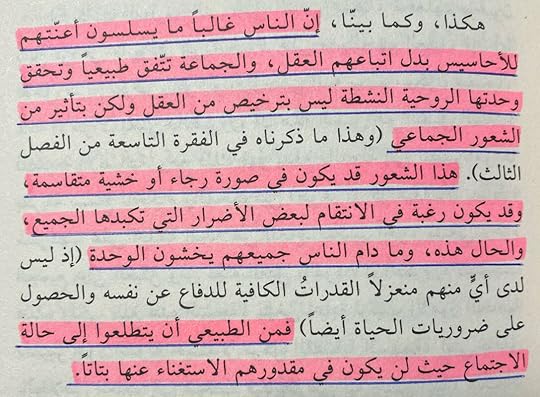 هكذا، وكما بينّا، إنّ الناس غالباً ما يسلسون أعنّتهم
للأحاسيس بدل اتباعهم العقل، والجماعة تتّفق طبيعياً وتحقق
وحدتها الروحية النشطة ليس بترخيص من العقل ولكن بتأثير من
الشعور الجماعي (وهذا ما ذكرناه في الفقرة التاسعة من الفصل
الثالث). هذا الشعور قد يكون في صورة رجاء أو خشية متقاسمة،
وقد يكون رغبة في الانتقام لبعض الأضرار التي تكبدها الجميع،
والحال هذه، وما دام الناس جميعهم يخشون الوحدة (إذ ليس
لدى أيٍّ منهم منعزلاً القدراتُ الكافية للدفاع عن نفسه والحصول
على ضروريات الحياة أيضاً) فمن الطبيعي أن يتطلعوا إلى حالة
الاجتماع حيث لن يكون في مقدورهم الاستغناء عنها بتاتاً.